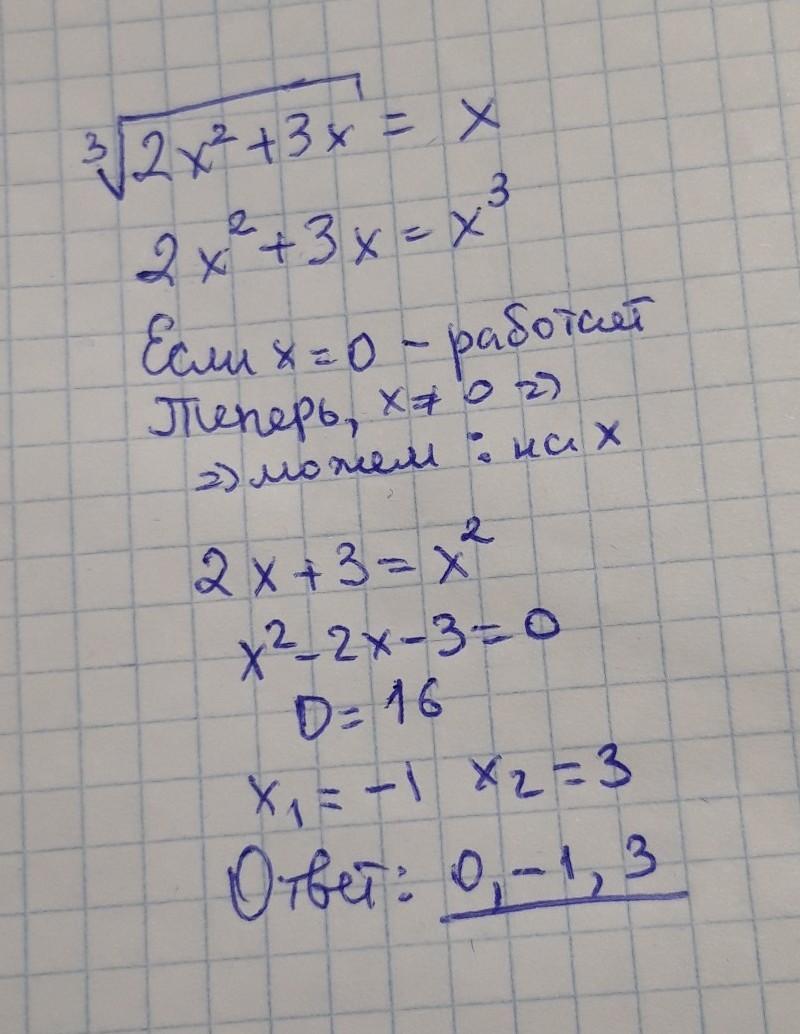 ∛(2x² + 3x) = x
2x² + 3x = x³
Если x = 0 – работает
Теперь, x ≠ 0 =>
=> можем : на x
2x + 3 = x²
x² - 2x - 3 = 0
D = 16
x₁ = -1 x₂ = 3
Ответ: 0, -1, 3